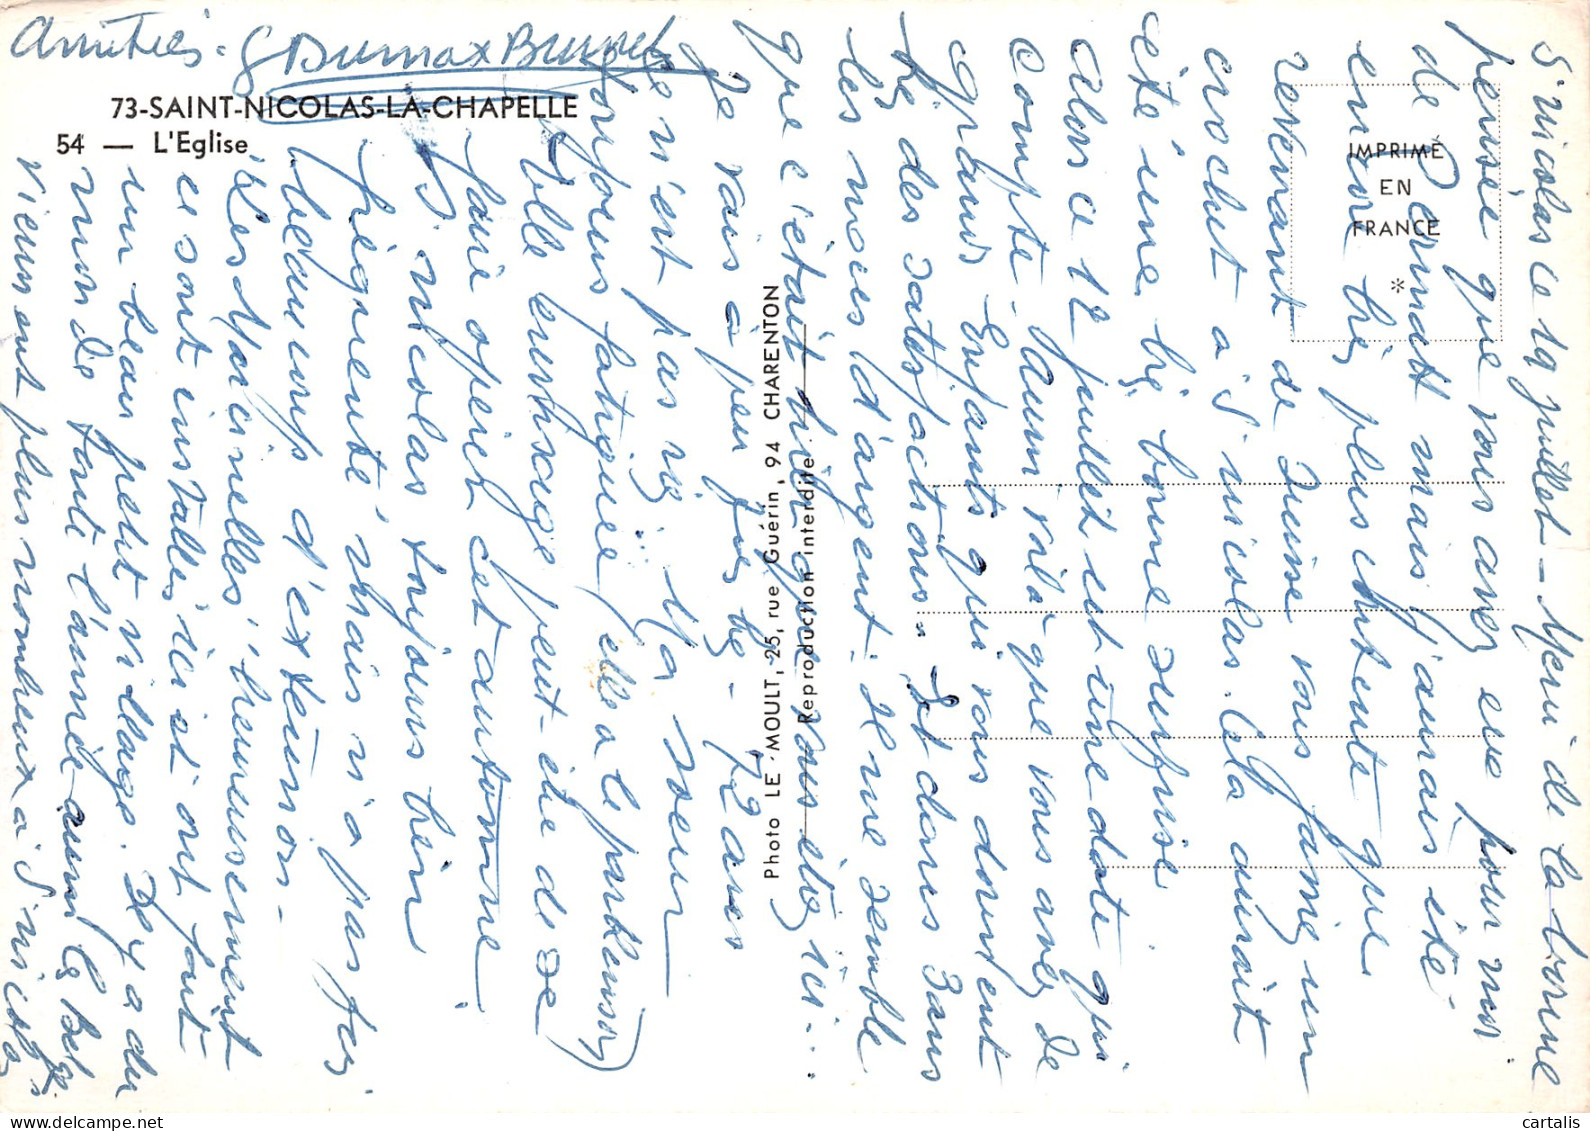 73-SAINT-NICOLAS-LA-CHAPELLE
54 — L'Eglise
IMPRIMÉ
EN
FRANCE
*
Photo LE MOULT, 25, rue Guérin, 94 CHARENTON
Reproduction interdite
S' nicolas ce 19 juillet - Merci de la bonne
pensée que vous avez eue pour moi
de mais j'aurais été
encore très plus contente que
revenant de Suisse vous fassiez un
crochet à S' nicolas. Cela aurait
été une très bonne surprise
Alors ce 12 juillet est une date qui
compte. Parmi voilà que vous avez de
grands Enfants qui vous donnent
des satisfactions. Et dans 3 ans
les noces d'argent. Il me semble
que c'était hier que vous étiez ici...
Je vais à peu près bien - 72 ans
ce n'est pas rien. Ma soeur
toujours fatiguée (elle a le parkinson)
Elle envisage peut-être de se
faire opérer cet automne
S' nicolas toujours bien
fréquenté mais n'a pas fait
beaucoup d'extension.
Les Marcinelles, heureusement
se sont installés ici et ont fait
un beau petit village. Il y a du
monde toute l'année aussi les Belges
viennent plus nombreux à S' nicolas
Amitiés. G Dumax Brunet